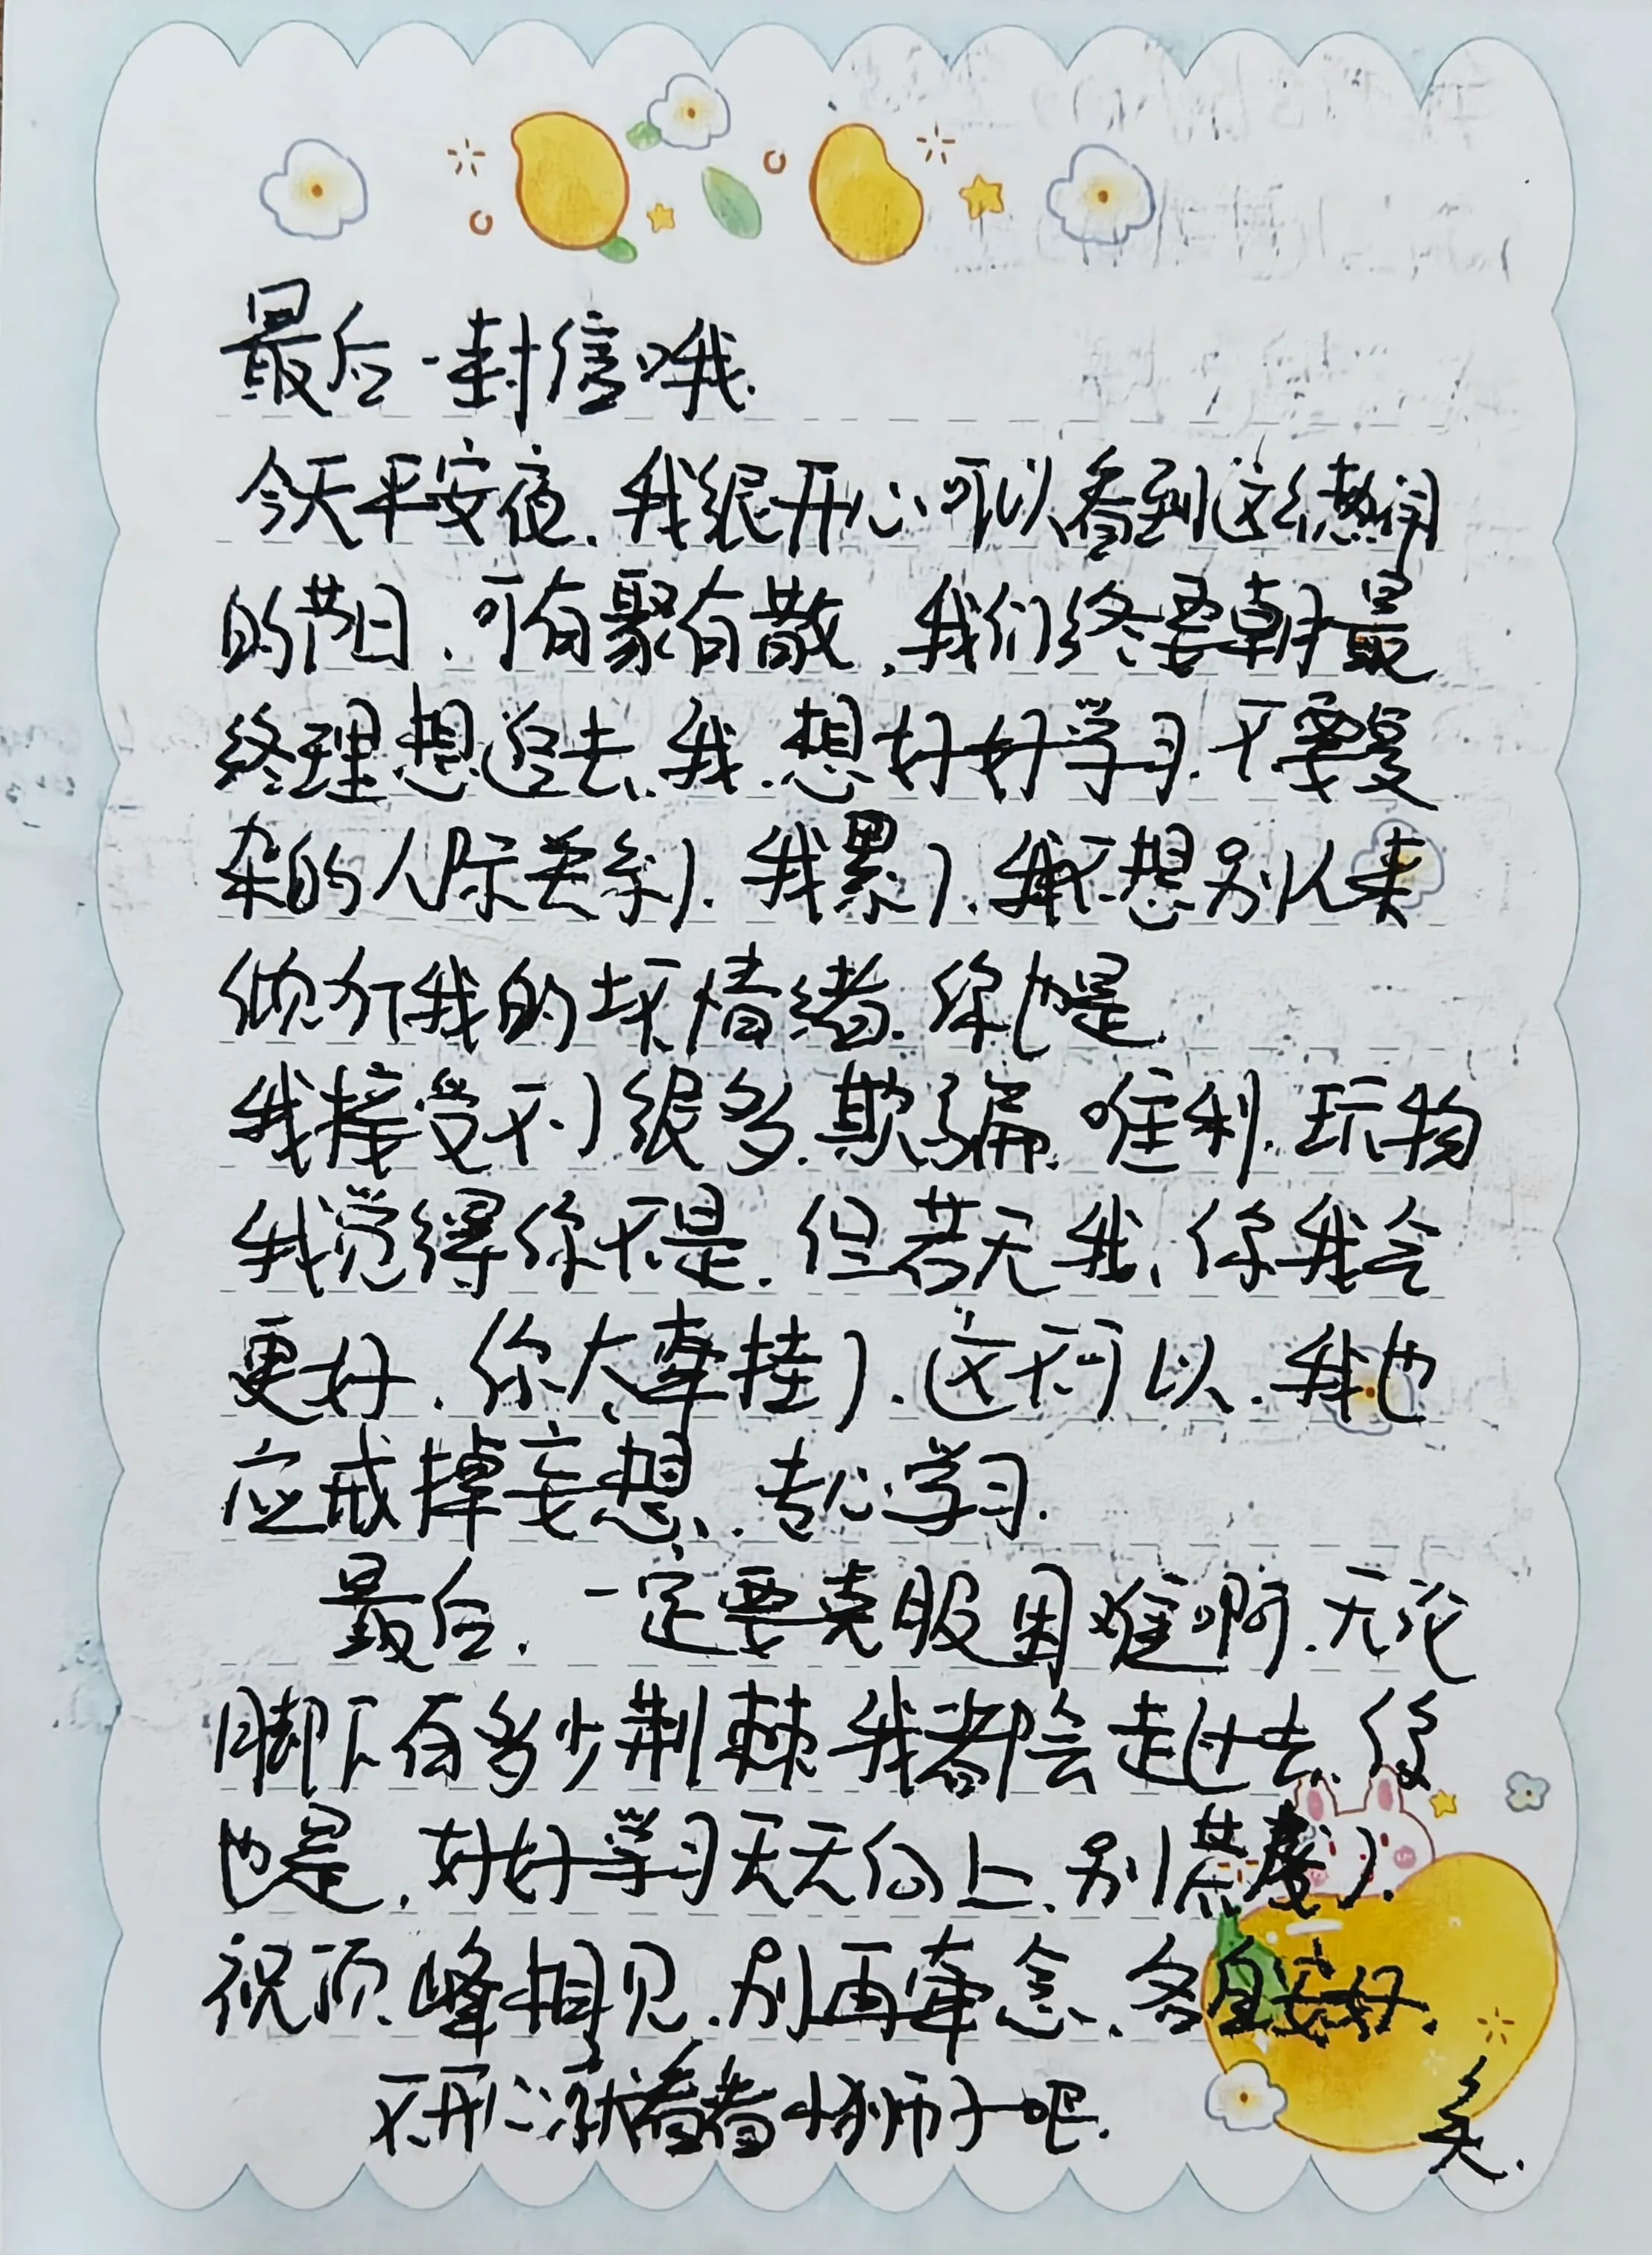 最后一封信哦.
今天平安夜.我很开心可以看到这么热闹
的节日.可有聚有散,我们终要朝最
终理想追去.我.想好好学习.不要复
杂的人际关系了.我累了.我不想别人来
倾听我的坏情绪.你也是.
我接受不了很多.欺骗.唯利.玩物
我觉得你不是.但若无我、你我会
更好.你太牵挂了.这不可以.我也
应戒掉妄想、.专心学习.
最后.一定要克服困难啊.无论
脚下有多少荆棘我都会走过去.你
也是.好好学习天天向上.别荒废了.
祝顶峰相见.别再牵念.各自安好.
不开心就看看小狮子吧.